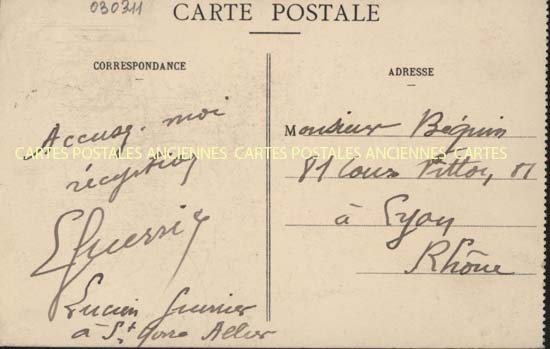 030311
CARTE POSTALE
CORRESPONDANCE
ADRESSE
Accusez-moi
réception
LGuerrier
Lucien Guerrier
à St Allier
Monsieur Béguin
81 Cours Vitton, 81
à Lyon
Rhône
CARTES POSTALES ANCIENNES CARTES POSTALES ANCIENNES CARTES